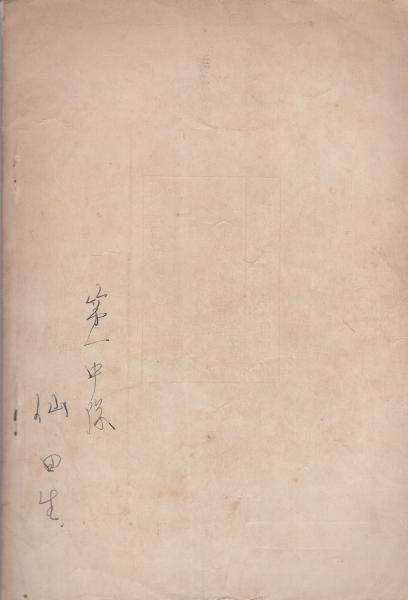 第一中隊
仙田生